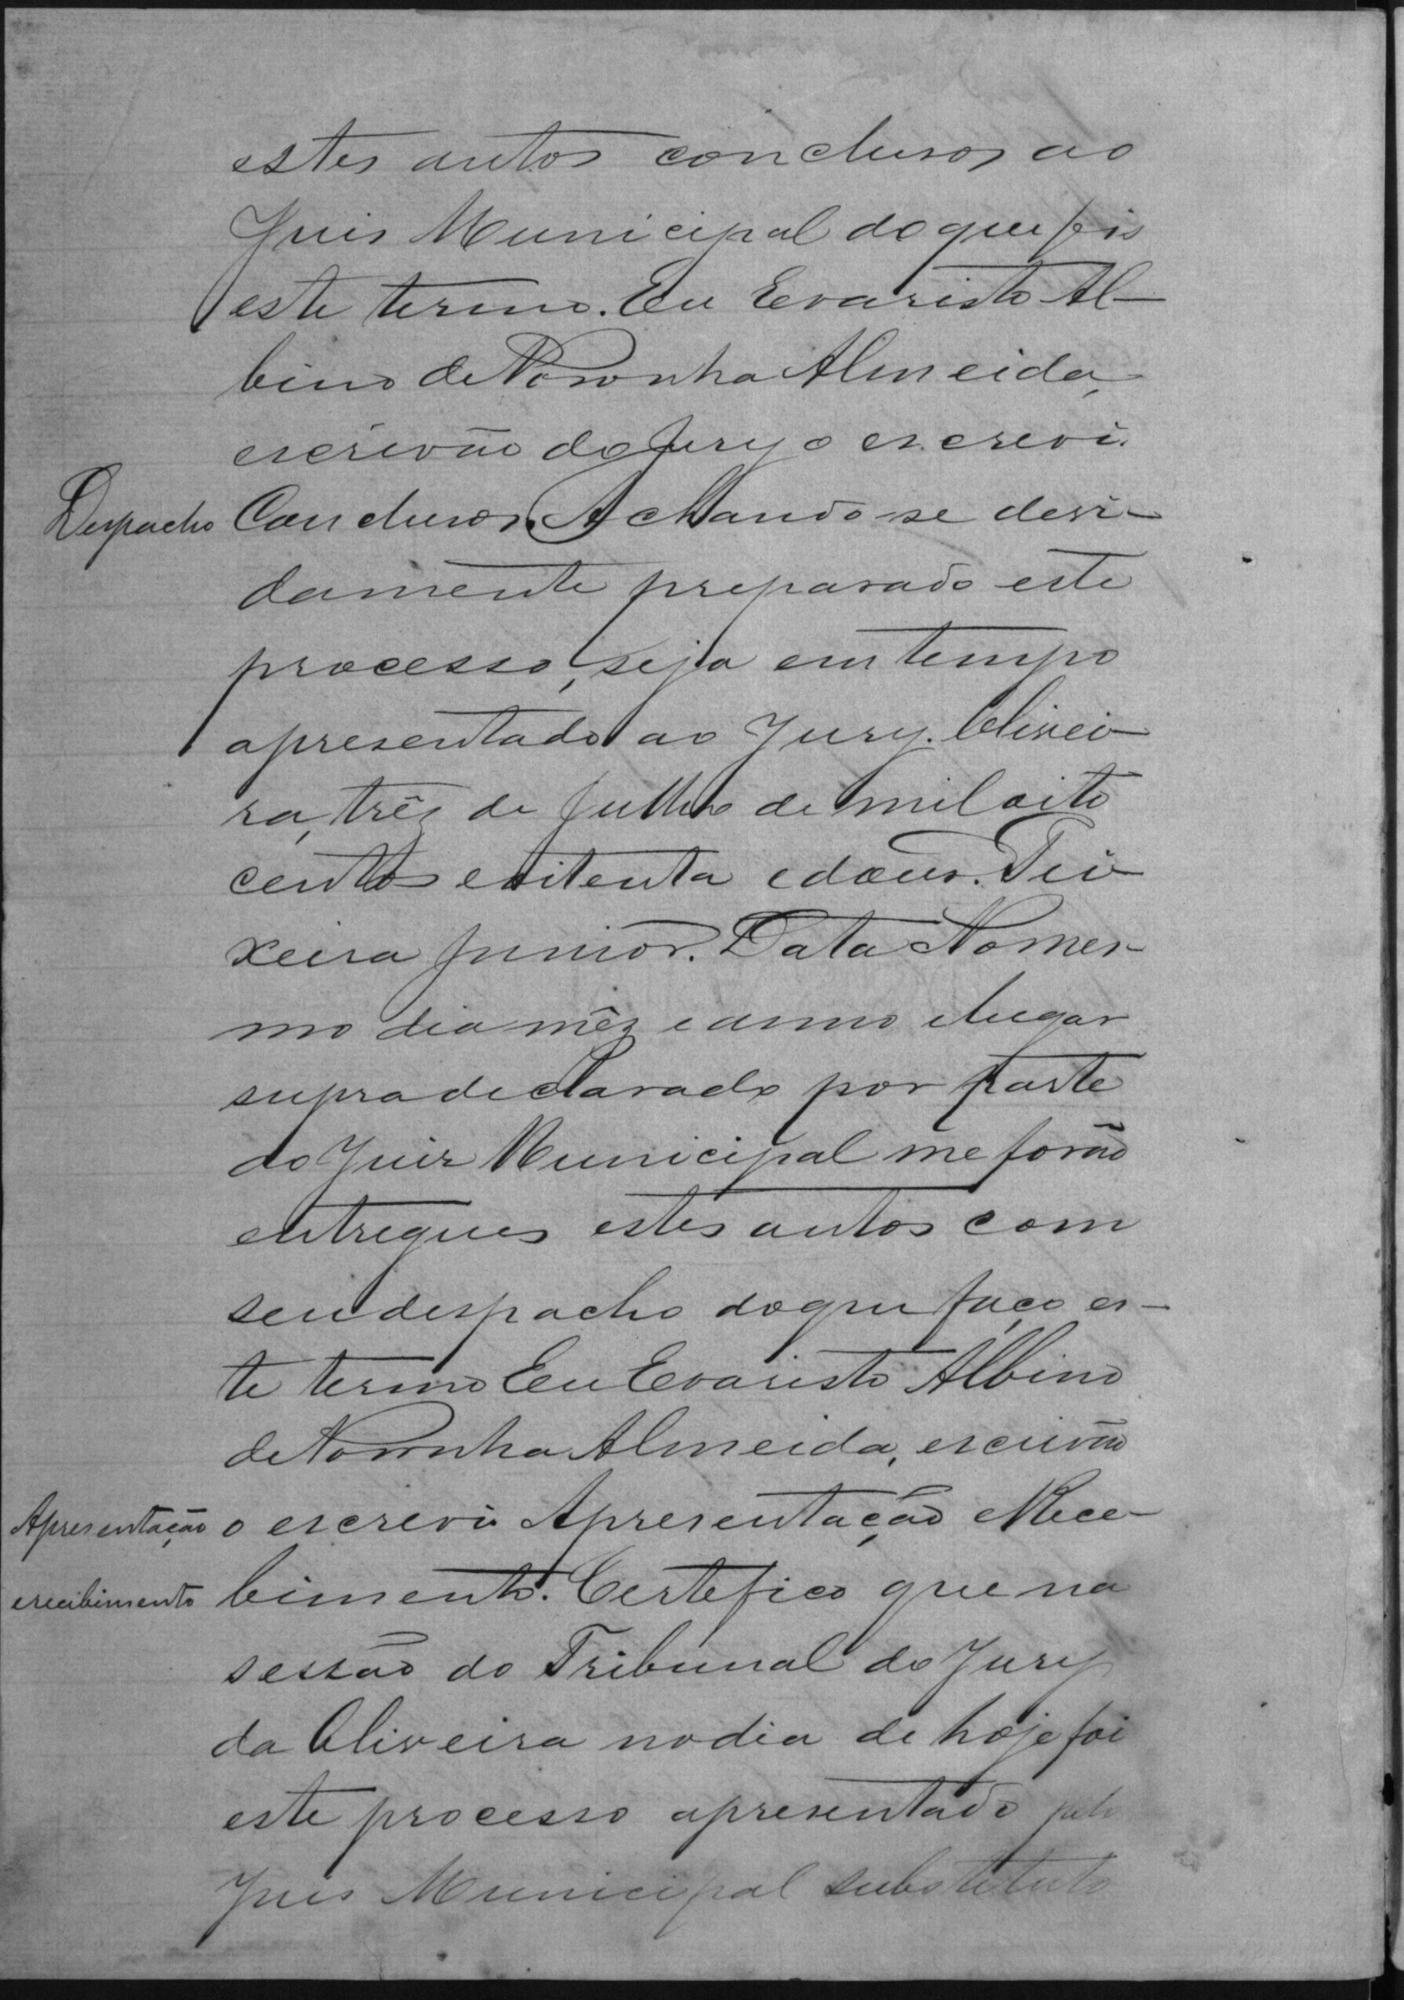 estes autos conclusos ao
Juis Municipal do que fis
este termo. Eu Evaristo Al-
bino de Noronha Almeida,
escrivão do Jury o escrevi.
Despacho Conclusos. Achando-se devi-
damente preparado este
processo, seja em tempo
apresentado ao Jury. Olivei-
ra, três de Julho de mil oito
centos e oitenta e dous. Tei-
xeira Junior. Data No mes-
mo dia mêz e anno e lugar
supra declarado por parte
do Juiz Municipal me forão
entregues estes autos com
seu despacho do que faço es-
te termo Eu Evaristo Albino
de Noronha Almeida, escrivão
Apresentação o escrevi Apresentação e Rece-
e recibimento bimento. Certefico que na
sessão do Tribunal do Jury
da Oliveira no dia de hoje foi
este processo apresentado pelo
Juis Municipal substituto